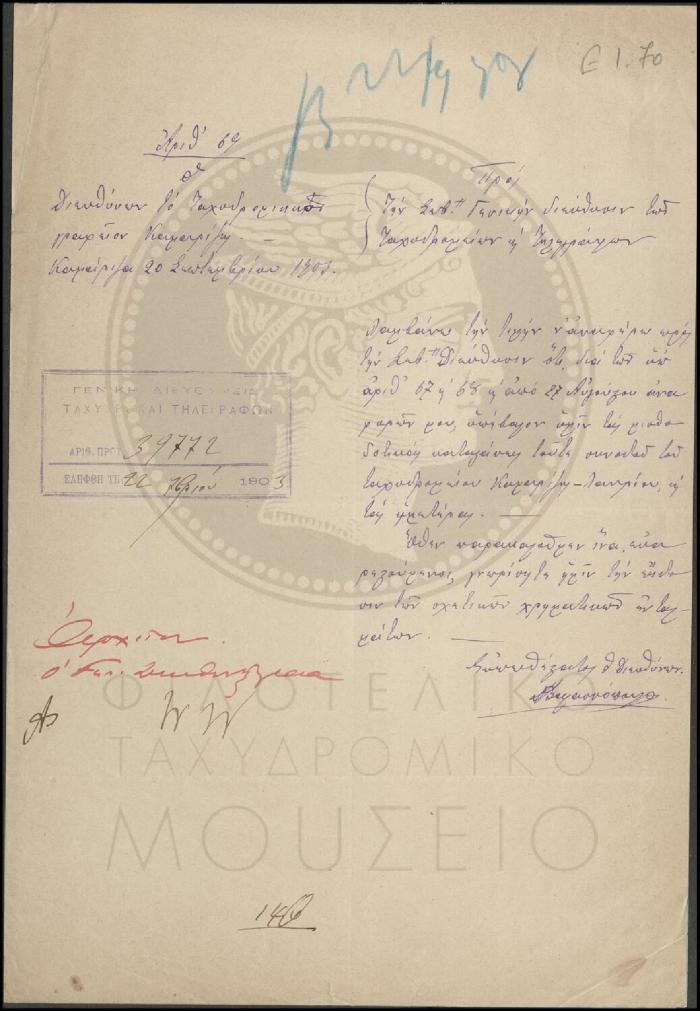 Ε 1.70
Ἀριθ 69
Ὁ
Διευθύνων τὸ Ταχυδρομικὸν
γραφεῖον Καμαρίζης
Καμάριζα 20 Σεπτεμβρίου 1903.
Πρὸς
τὴν Σεβ. Γενικὴν διεύθυνσιν τῶν
Ταχυδρομείων & Τηλεγράφων
Λαμβάνω τὴν τιμὴν ν' ἀναφέρω πρὸς
τὴν Σεβ. Διεύθυνσιν ὅτι διὰ τῶν ὑπ'
ἀριθ 67 & 68 & ἀπὸ 27 Αὐγούστου ἀνα
φορῶν μου, ὑπέβαλον ὑμῖν τὰς μισθο
δοτικὰς καταστάσεις τοῦ τε συνοδοῦ τοῦ
ταχυδρομείου Καμαρίζης-Λαυρίου, &
τὰς ἡμετέρας.
Ὅθεν παρακαλοῦμεν ἵνα, εὐα
ρεστούμενοι, γνωρίσητε ἡμῖν τὴν ἔκδο
σιν τῶν σχετικῶν χρηματικῶν ἐνταλ
μάτων.
Εὐπειθέστατος ὁ Διευθύνων
ΓΕΝΙΚΗ ΔΙΕΥΘΥΝΣΙΣ
ΤΑΧΥΔΡ. ΚΑΙ ΤΗΛΕΓΡΑΦΩΝ
ΑΡΙΘ. ΠΡΩΤ. 39772
ΕΛΗΦΘΗ ΤΗ 22 7βρίου 1903
ΦΙΛΟΤΕΛΙΚΟ
ΤΑΧΥΔΡΟΜΙΚΟ
ΜΟΥΣΕΙΟ